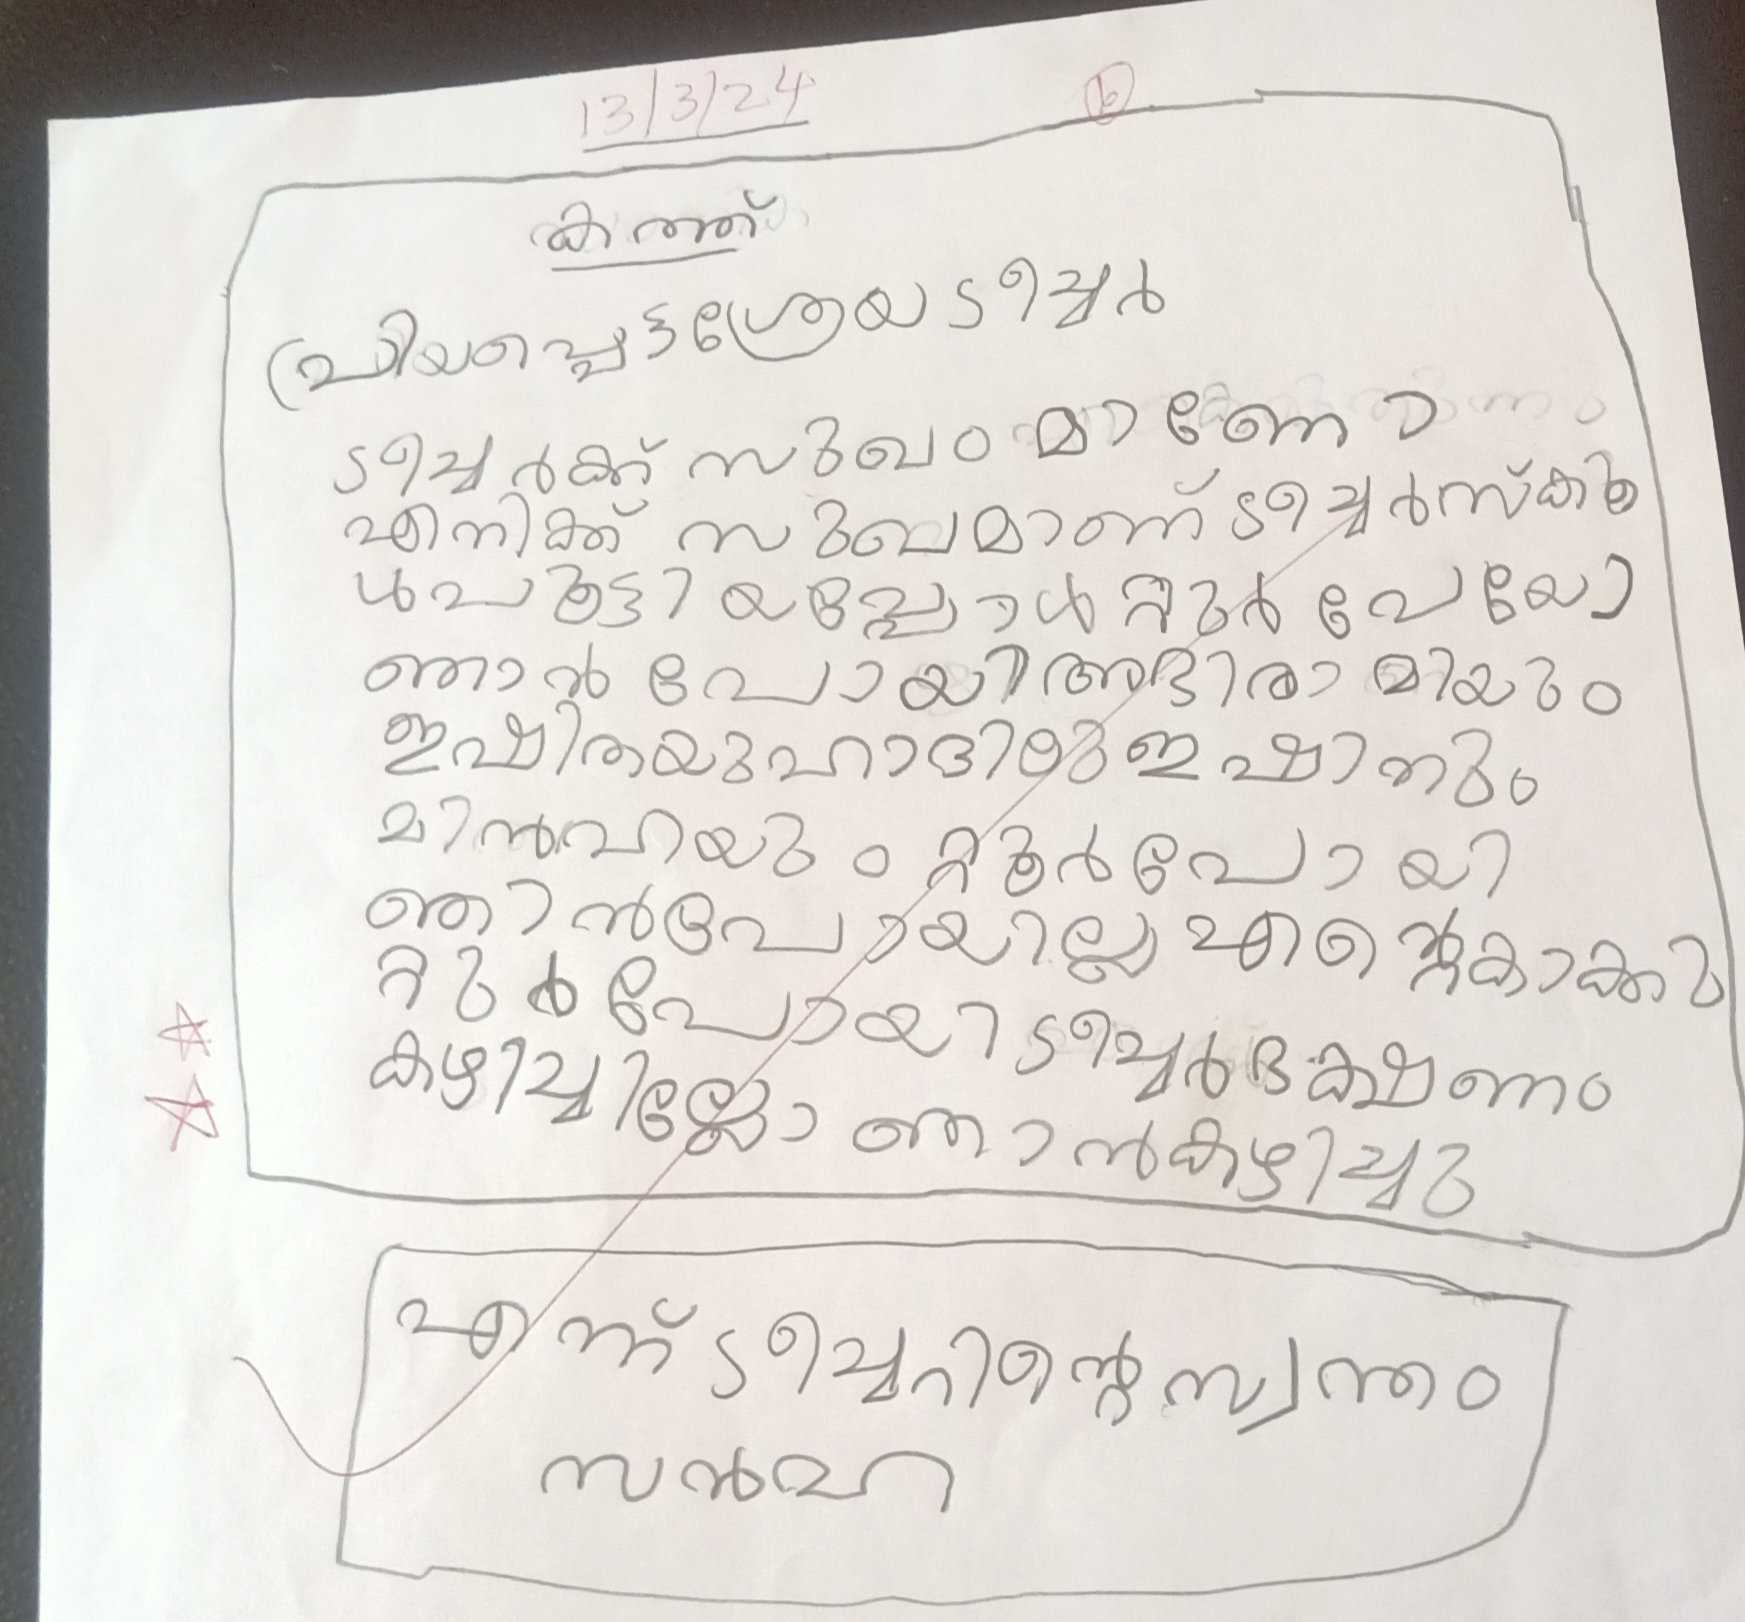 13/3/24
6
കത്ത്
പ്രിയപ്പെട്ട ശ്രേയ ടീച്ചർ
ടീച്ചർക്ക് സുഖം മാണോ
എനിക്ക് സുഖമാണ് ടീച്ചർ സ്കൂ
ൾ പൂട്ടിയപ്പോൾ റ്റൂർ പേയോ
ഞാൻ പോയി അഭിരാമിയും
ഇഷിതയു ഹാദിലു ഇഷാനും
മിൻഹയും റ്റൂർ പോയി
ഞാൻ പോയില്ല എന്റെ കാക്കു
റ്റൂർ പോയി ടീച്ചർ ഭക്ഷണം
കഴിച്ചില്ലേ ഞാൻ കഴിച്ചു
എന്ന് ടീച്ചെറിന്റെ സ്വന്തം
സൻഹ